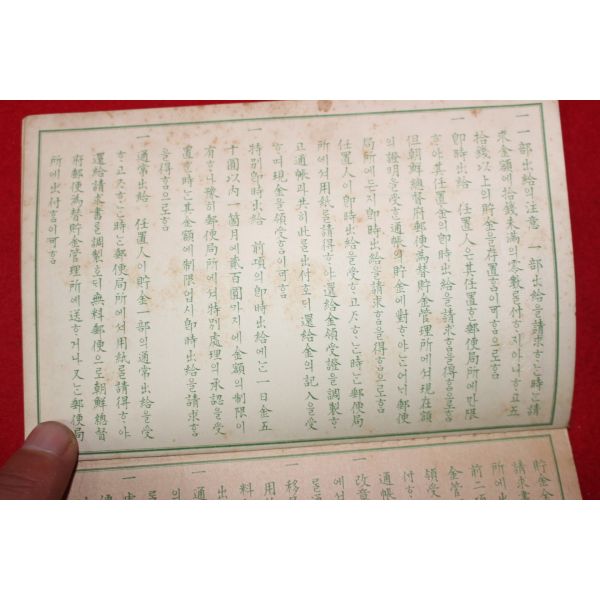 一 一部出給의注意 一部出給을請求ᄒᆞᄂᆞᆫ時ᄂᆞᆫ請
求金額에拾錢未滿의零數ᄅᆞᆯ付ᄒᆞ지아니ᄒᆞ고五
拾錢以上의貯金을存置ᄒᆞᆷ이可ᄒᆞᆷ
一 卽時出給 任置人은其任置ᄒᆞᆫ郵便局所에만限
ᄒᆞ야其任置金의卽時出給을請求ᄒᆞᆷ을得ᄒᆞᆷ으로ᄒᆞᆷ
但朝鮮總督府郵便爲替貯金管理所에셔現在額
의證明을受ᄒᆞᆫ通帳의貯金에對ᄒᆞ야ᄂᆞᆫ어ᄂᆞ郵便
局所에든지卽時出給을請求ᄒᆞᆷ을得ᄒᆞᆷ으로ᄒᆞᆷ
任置人이卽時出給을受ᄒᆞ고ᄌᆞᄒᆞᄂᆞᆫ時ᄂᆞᆫ郵便局
所에셔用紙ᄅᆞᆯ請得ᄒᆞ야還給金領受證을調製ᄒᆞ
고通帳과共히此ᄅᆞᆯ出付ᄒᆞ되還給金의記入을受
ᄒᆞ며現金을領受ᄒᆞᆷ이可ᄒᆞᆷ
一 特別卽時出給 前項의卽時出給에ᄂᆞᆫ一日金五
十圓以內一箇月에貳百圓ᄭᆞ지에金額의制限이
有ᄒᆞ나豫히郵便局所에셔特別處理의承認을受
ᄒᆞᆫ時ᄂᆞᆫ其金額에制限업시卽時出給을請求ᄒᆞᆷ
을得ᄒᆞᆷ으로ᄒᆞᆷ
一 通常出給 任置人이貯金一部의通常出給을受
ᄒᆞ고ᄌᆞᄒᆞᄂᆞᆫ時ᄂᆞᆫ郵便局所에셔用紙ᄅᆞᆯ請得ᄒᆞ야
還給請求書ᄅᆞᆯ調製ᄒᆞ되無料郵便으로朝鮮總督
府郵便爲替貯金管理所에送ᄒᆞ거나又ᄂᆞᆫ郵便局
所에出付ᄒᆞᆷ이可ᄒᆞᆷ
貯金全
請求書
所에出
前二項
金管
領受
付ᄒᆞ
通帳
改章
에셔
移
用
料
出
一 通
의